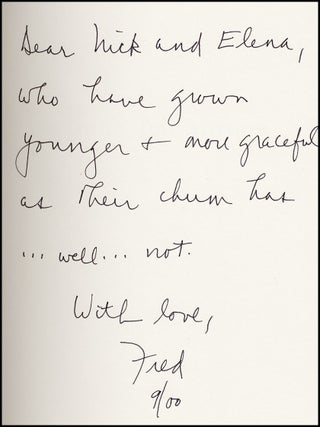 Dear Nick and Elena,
who have grown
younger + more graceful
as their chum has
... well... not.
With love,
Fred
9/00